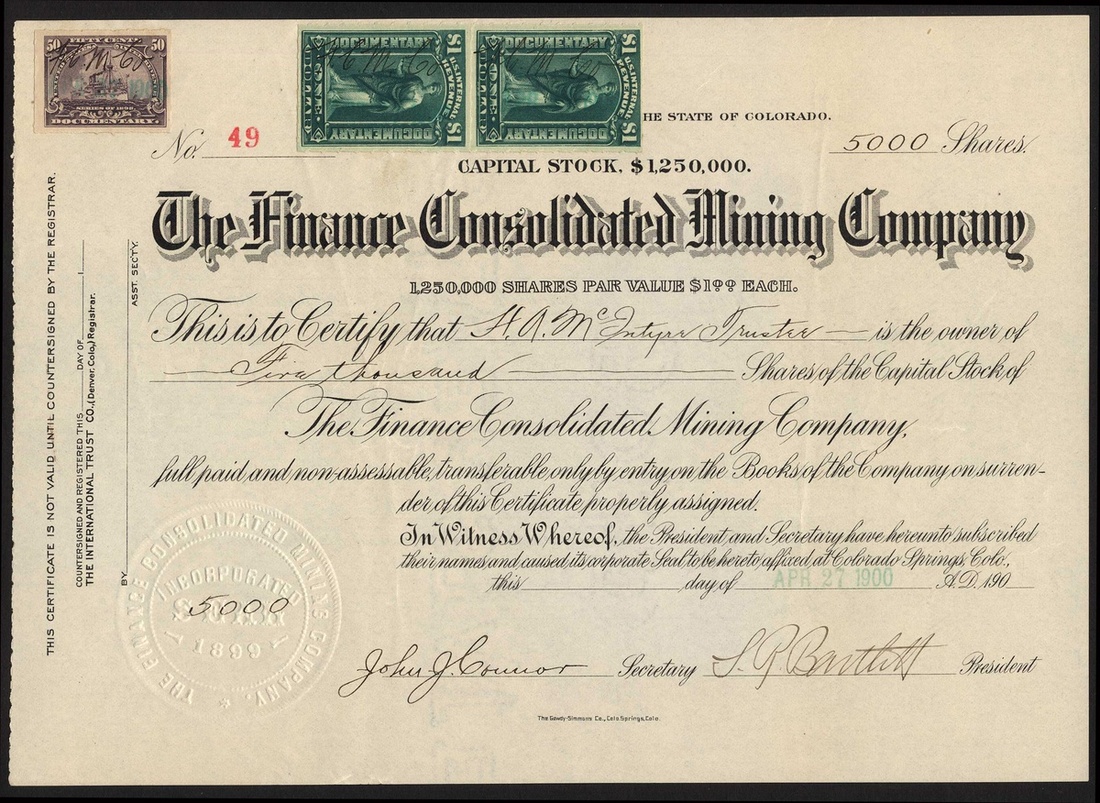 FIFTY CENTS
50 50
SERIES OF 1898
DOCUMENTARY.
DOCUMENTARY
ONE
DOLLAR
DOCUMENTARY
$1 U.S. INTERNAL REVENUE $1
DOCUMENTARY
ONE
DOLLAR
DOCUMENTARY
$1 U.S. INTERNAL REVENUE $1
HE STATE OF COLORADO.
No. 49
5000 Shares.
CAPITAL STOCK, $1,250,000.
The Finance Consolidated Mining Company
1,250,000 SHARES PAR VALUE $1.00 EACH.
This is to Certify that H. A. McIntyre Trustee is the owner of
Five thousand Shares of the Capital Stock of
The Finance Consolidated Mining Company,
full paid and non-assessable, transferable only by entry on the Books of the Company on surren-
der of this Certificate properly assigned.
In Witness Whereof, the President, and Secretary have hereunto subscribed
their names and caused its corporate Seal to be hereto affixed, at Colorado Springs, Colo.,
this day of APR 27 1900 A.D. 190
John J. Connor Secretary S. R. Bartlett President
The Gowdy-Simmons Co., Colo Springs, Colo.
THIS CERTIFICATE IS NOT VALID UNTIL COUNTERSIGNED BY THE REGISTRAR.
COUNTERSIGNED AND REGISTERED THIS DAY OF 1
THE INTERNATIONAL TRUST CO., (Denver, Colo.) Registrar.
BY ASST. SECTY.
THE FINANCE CONSOLIDATED MINING COMPANY.
INCORPORATED
SEAL
1899
5000